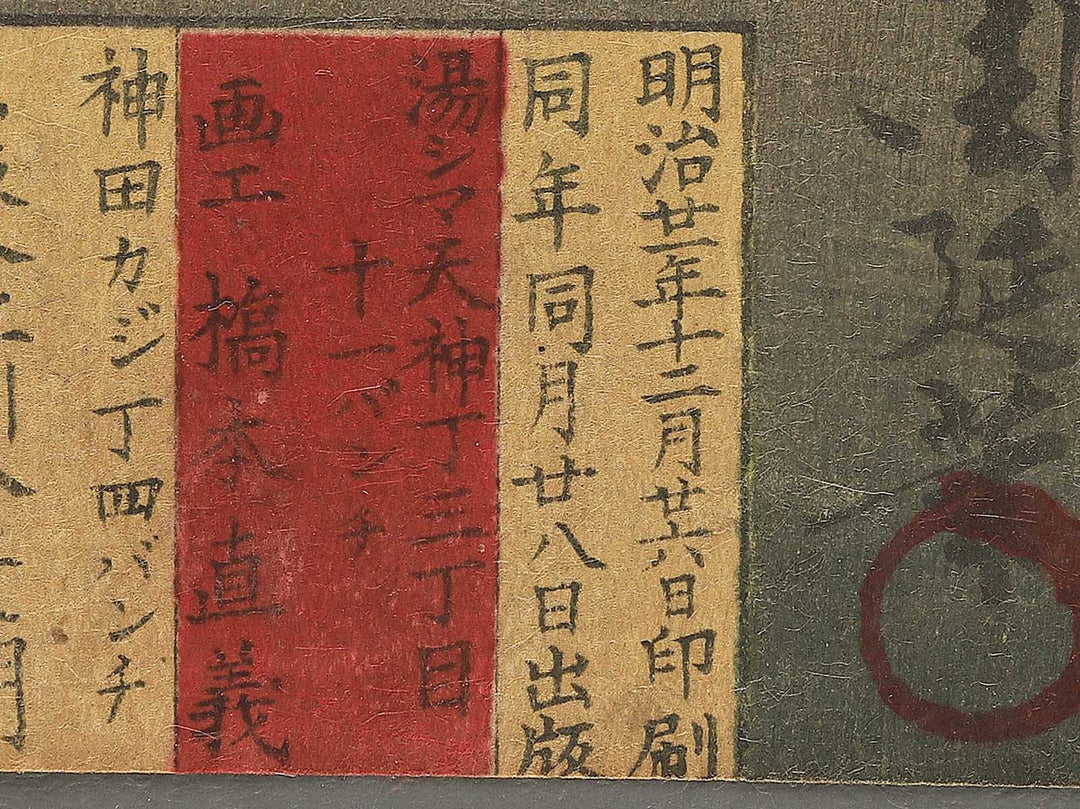 明治廿一年十二月廿六日印刷
同年同月廿八日出版
湯シマ天神丁三丁目
十一バンチ
画工 橋本直義
神田カジ丁四バンチ